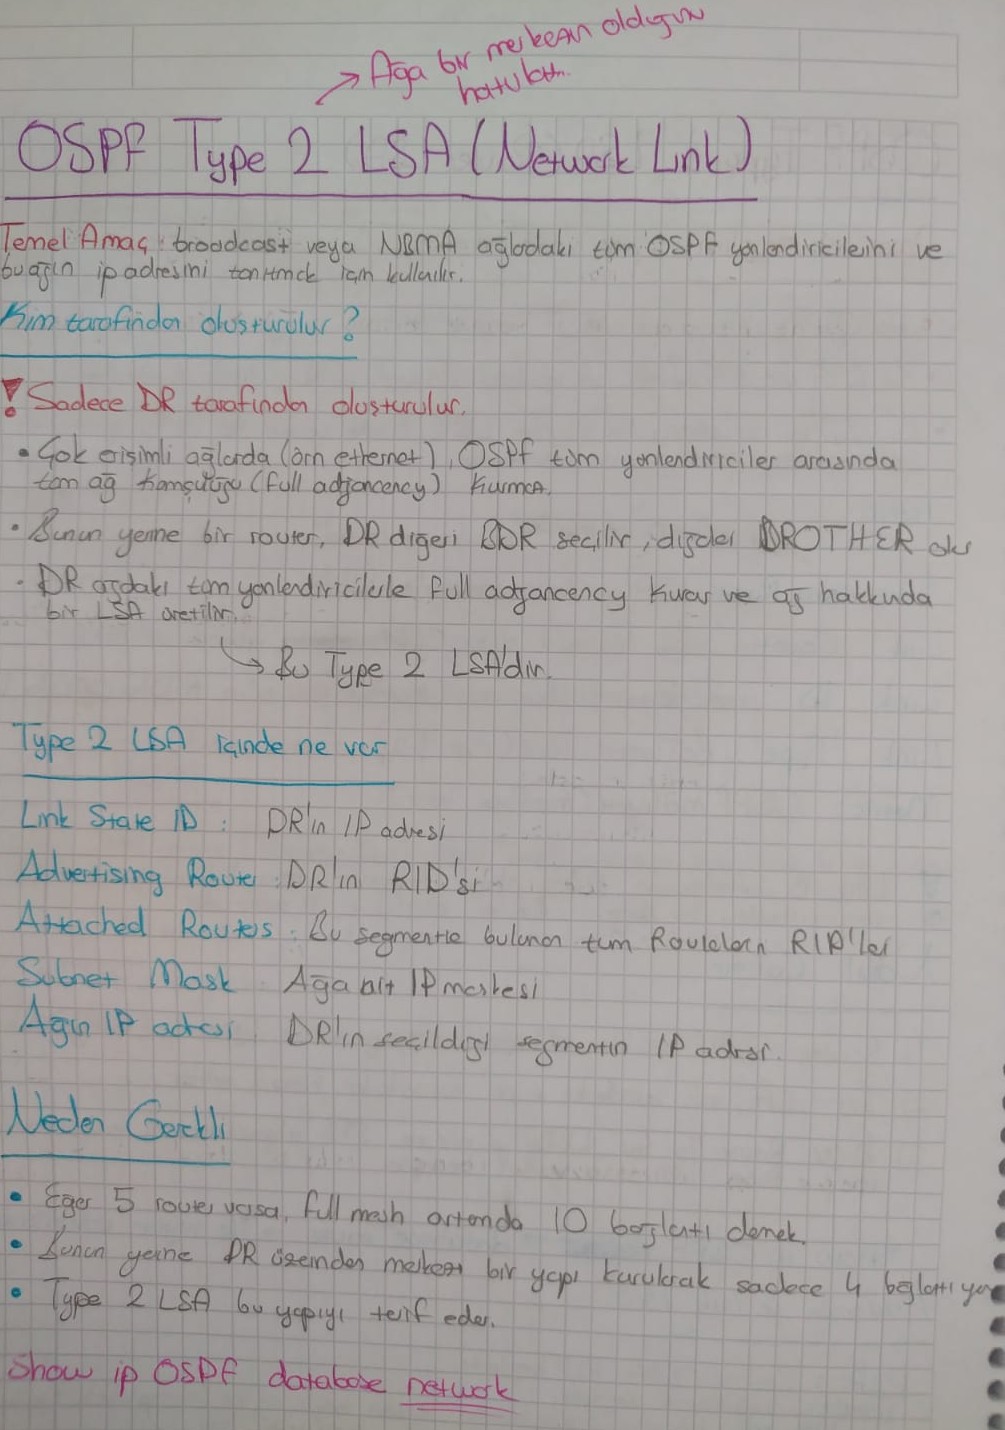 Ağa bir merkezin olduğunu
hatırlatır.
OSPF Type 2 LSA (Network Link)
Temel Amaç: broadcast veya NBMA ağlardaki tüm OSPF yönlendiricilerini ve
bu ağın ip adresini tanıtmak için kullanılır.
Kim tarafından oluşturulur?
! Sadece DR tarafından oluşturulur.
• Çok erişimli ağlarda (örn ethernet), OSPF tüm yönlendiriciler arasında
tam ağ komşuluğu (full adjancency) kurmaz.
• Bunun yerine bir router, DR diğeri BDR seçilir, diğerleri DROTHER olur
• DR ağdaki tüm yönlendiricilerle full adjancency kurar ve ağ hakkında
bir LSA üretilir.
↳ Bu Type 2 LSA'dır.
Type 2 LSA içinde ne var
Link State ID : DR'in IP adresi
Advertising Router : DR'in RID'si
Attached Routers : Bu segmentte bulunan tüm Routerların RID'leri
Subnet Mask Ağa ait IP maskesi
Ağın IP adresi DR'in seçildiği segmentin IP adresi.
Neden Gerekli
• Eğer 5 router varsa, full mesh ortamda 10 bağlantı demek.
• Bunun yerine DR üzerinden merkezi bir yapı kurularak sadece 4 bağlantı
• Type 2 LSA bu yapıyı tarif eder.
Show ip OSPF database network